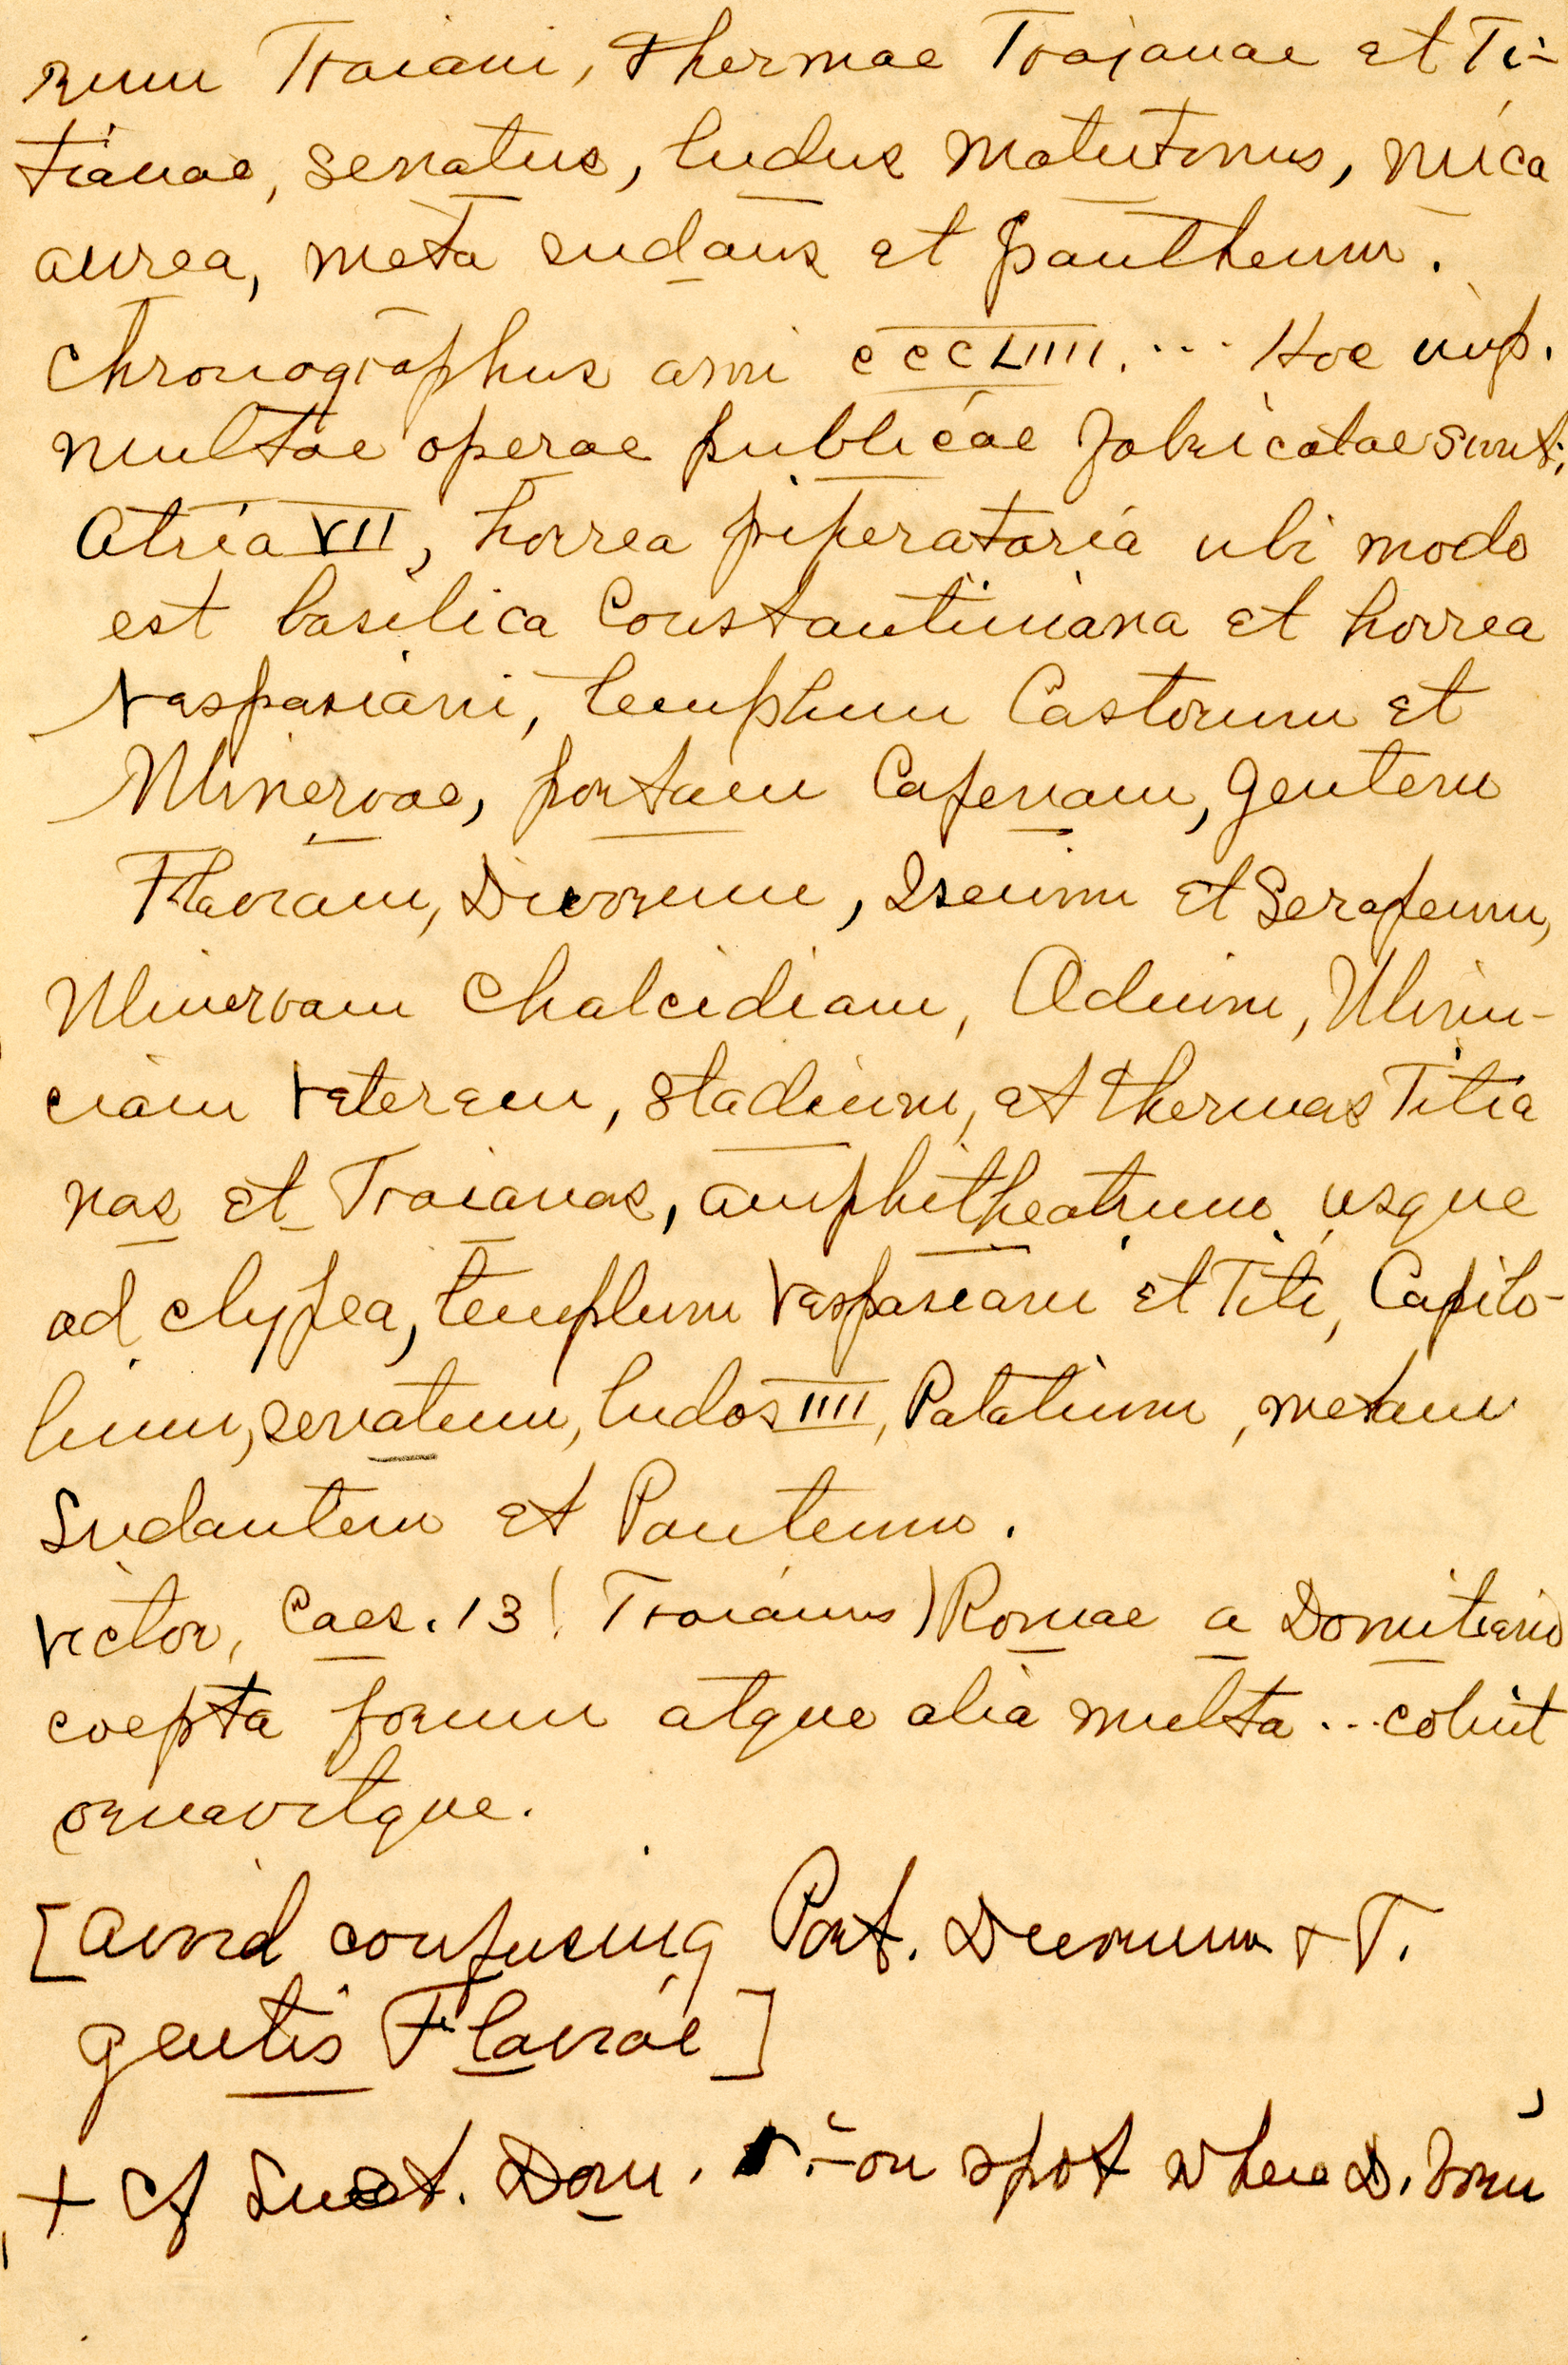 rum Traiani, thermae Trajanae et Ti-
tianae, senatus, ludus matutinus, mica
aurea, meta sudans et pantheum.
Chronographus anni CCCLIIII. ... Hoc imp.
multae operae publicae fabricatae sunt;
Atria VII, horrea piperataria ubi modo
est basilica Constantiniana et horrea
Vespasiani, templum Castorum et
Minervae, portam Capenam, gentem
Flaviam, Divorum, Iseum et Serapeum,
Minervam Chalcidiam, Odium, Minu-
ciam Veterem, stadium, et thermas Titia
nas et Traianas, amphitheatrum usque
ad clypea, templum Vespasiani et Titi, Capito-
lium, senatum, ludos IIII, Palatium, metam
Sudantem et Panteum.
Victor, Caes. 13 (Traianus) Romae a Domitiano
coepta forum atque alia multa ... coluit
ornavitque.
[avoid confusing Port. Divorum + T.
gentis Flaviae]
+ Cf Suet. Dom. :-on spot where D. born